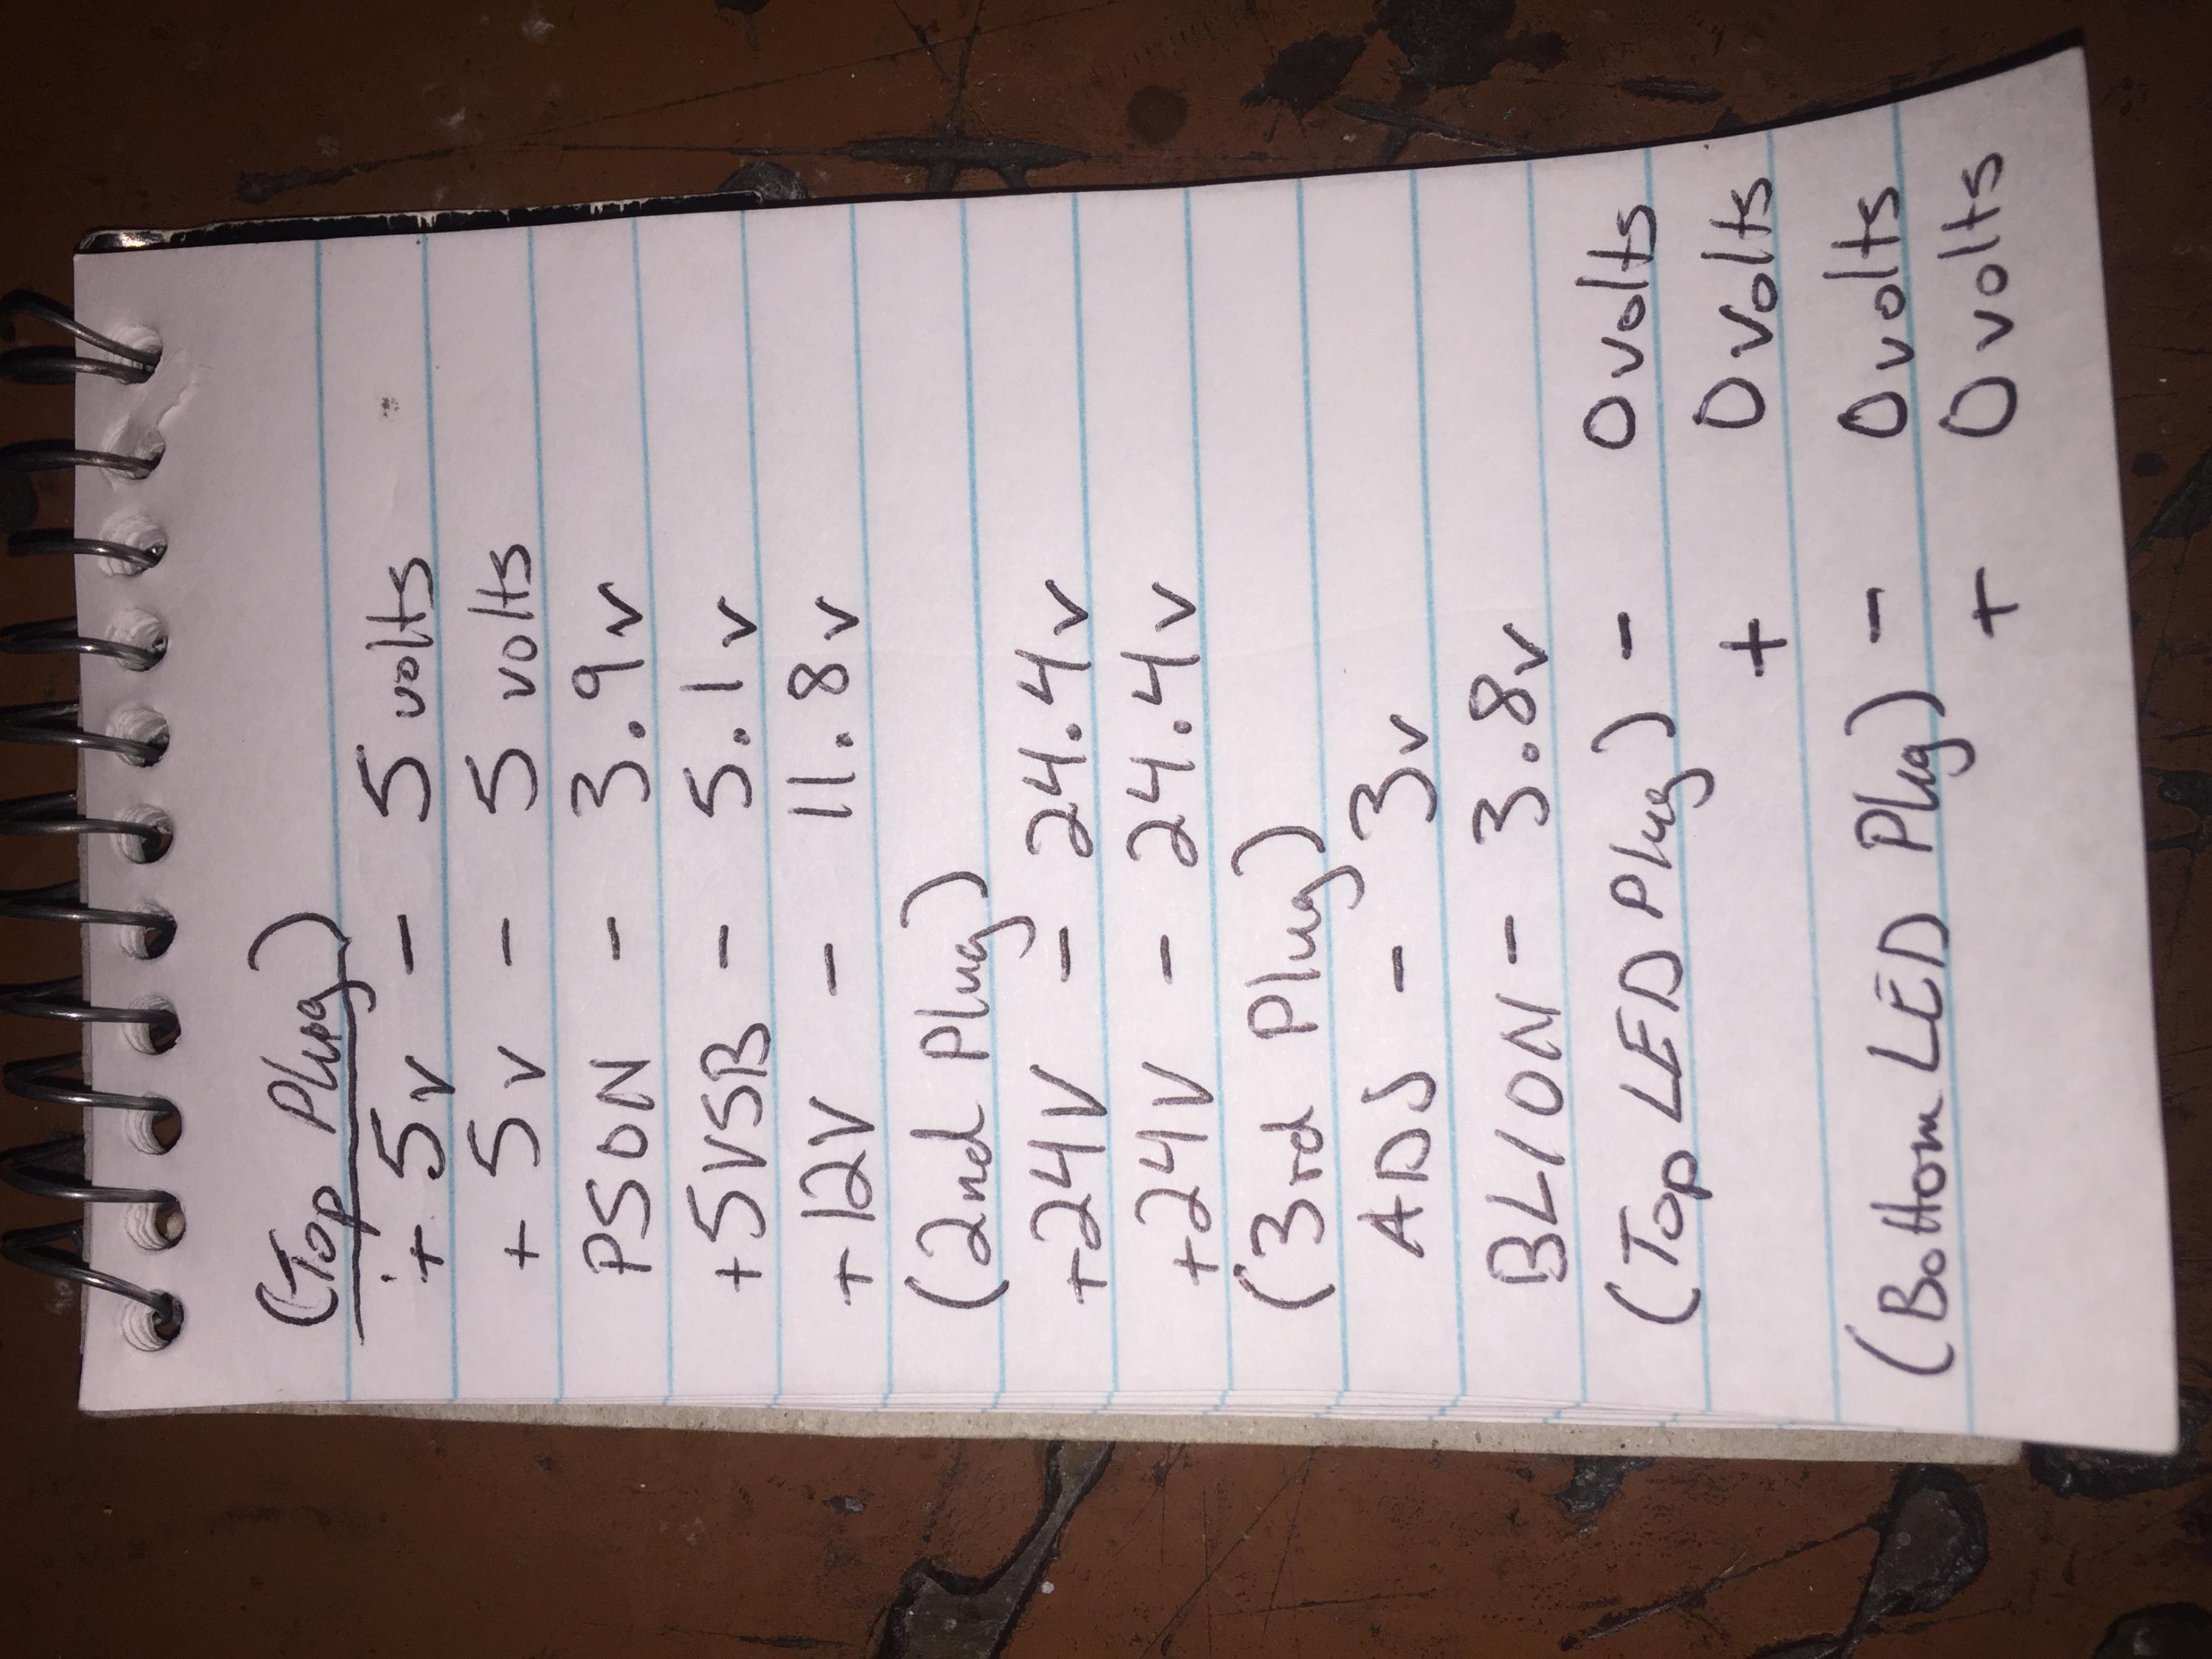 (Top Plug)
+ 5v - 5 volts
+ 5v - 5 volts
PSON - 3.9v
+5VSB - 5.1v
+12V - 11.8v
(2nd Plug)
+24V - 24.4v
+24V - 24.4v
(3rd Plug)
ADJ - 3v
BL/ON - 3.8v
(Top LED Plug) - 0 volts
+ 0 volts
(Bottom LED Plug) - 0 volts
+ 0 volts